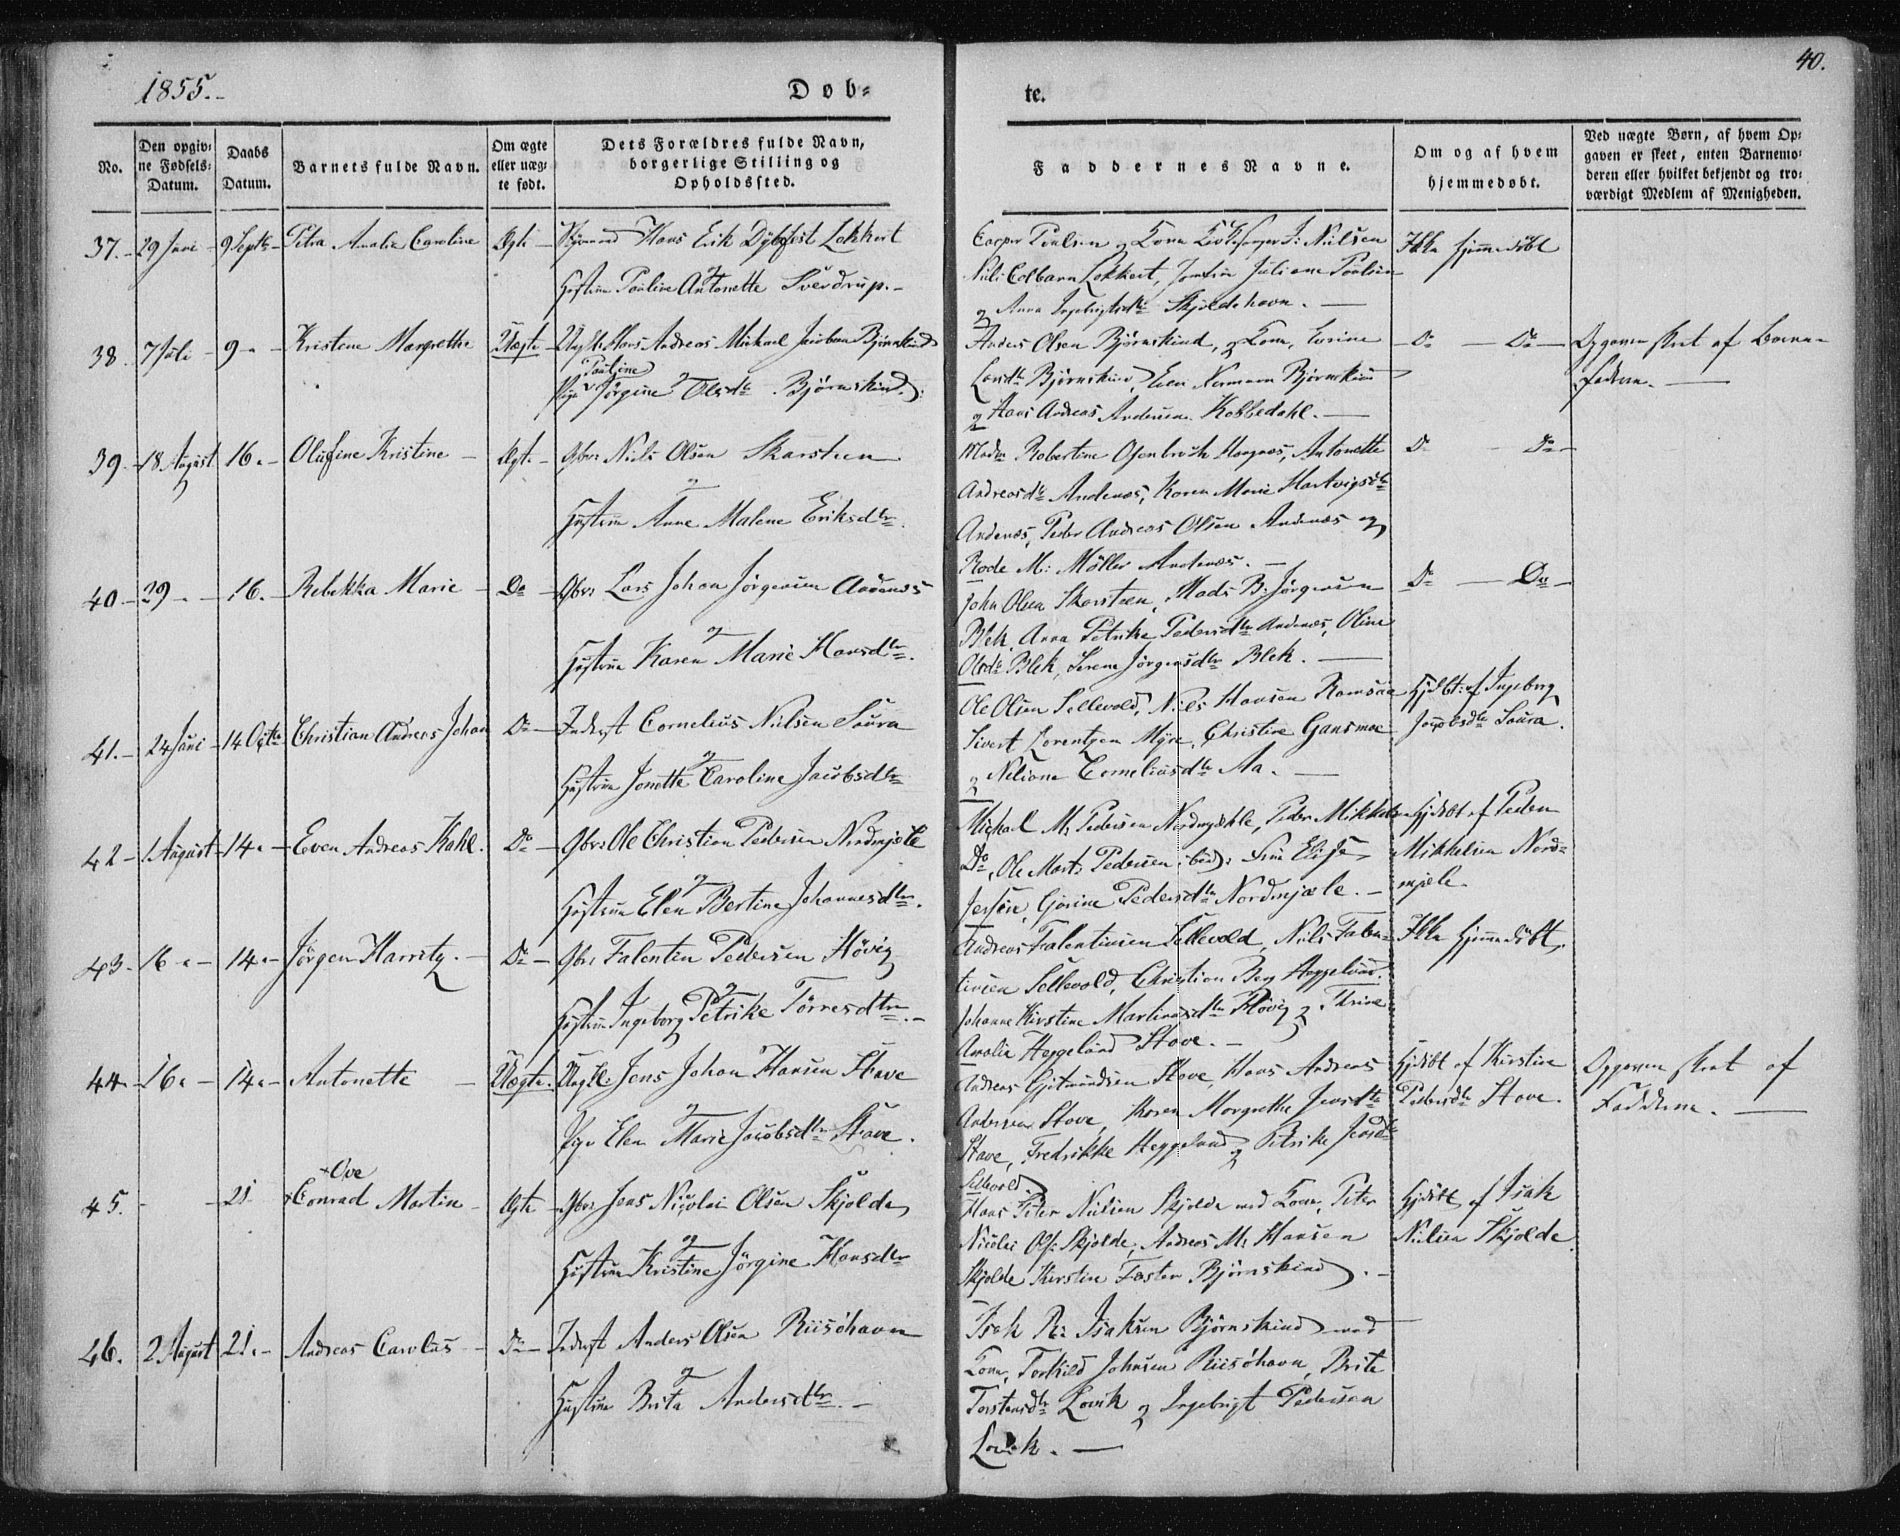 1855.
Døb-
te.
40.
No.
Den opgiv-
ne Fødsels-
Datum.
Daabs
Datum.
Barnets fulde Navn.
Om ægte
eller uæg-
te født.
Dets Forældres fulde Navn,
borgerlige Stilling og
Opholdssted.
Faddernes Navne.
Om og af hvem
hjemmedøbt.
Ved uægte Børn, af hvem Op-
gaven er skeet, enten Barnemo-
deren eller hvilket bekjendt og tro-
værdigt Medlem af Menigheden.
37. 29 Juni 9 Septbr Petra Amalia Caroline Ægte Hans Erik Dybfest Lokkert
og
Hustrue Pauline Antonette Sverdrup.
Casper Poulsen og Kone Kirkesanger J: Nielsen
Nils Colbarn Lokkert, Jomfru Juliane Poulsen
og Anna Skjoldehavn.
Ikke hjemmedöbt
38. 7 Juli 9 Kristene Margrethe Uægte Ungk: Hans Andreas Michael Jacobsen Björnskind
og
Pauline
Pige Jörgine Olsdtr Björnskind.
Anders Olsen Björnskind, og Kone, Lorine
Larsdtr Björnskind, Normann Björnskind
og Hans Andreas Andersen Kobbedahl.
Do Do
Opgaven skeet af Barne-
faderen.
39. 18 August 16. Olufine Kristine Ægt. Gbr: Nils Olsen Skarsteen
og
Hustrue Anne Malene Eriksdtr.
Madm Robertine Osenbroch Haugnæs, Antonette
Andreasdtr Andenæs, Karen Marie Hartvigsdtr
Andenæs, Peder Andreas Olsen Andenæs og
Rode M: Möller Andenæs.
Do Do
40 29 16. Rebekka Marie Do Gbr: Lars Johan Jörgensen Aaenæs
og
Hustrue Karen Marie Hansdtr.
John Olsen Skarsteen, Mads B: Jörgensen
Blek, Anna Petrike Pedersdtr Andenæs, Oline
Olsdtr Blek, Serene Jörgensdtr Blek.
Do Do
41. 24 Juni 14 Octbr Christian Andreas Johan Do Inderst Cornelius Nilsen Saura
og
Hustrue Jonette Caroline Jacobsdtr
Ole Olsen Sellevold, Niels Hansen Ramsaa
Sivert Lorentzen Myre, Christine Gansmoe
og Neliane Corneliusdtr Aa.
Hjdbt: af Ingeborg
Jacobsdtr Saura.
42 1 August 14. Even Andreas Kahl. Do Gbr: Ole Christian Pedersen Nordmjele
og
Hustrue Elen Bertine Johannesdtr.
Michael M: Pedersen Nordmjehle, Peder Mikkelsen
Do, Ole Marts Pedersen ibid: Elise
Gjorine Pedersdtr Nordmjæle.
Hjdöbt af Peder
Mikkelsen Nord-
mjele.
43. 16 14. Jörgen Havritz. Do Gbr: Falenten Pedersen Hövig
og
Hustrue Ingeborg Petrike Törresdtr.
Andreas Falentinsen Sellevold, Nils Falen-
tinsen Sellevold, Christian Berg Heggelund.
Johanne Kirstine Martinusdtr Hövig og Thrine
Amalia Heggelund Stave.
Ikke hjemmedöbt,
44. 16 14. Antonette Uægte. Ungk: Jens Johan Hansen Stave
og
Pige Elen Marie Jacobsdtr Stave.
Andreas Gjetmundsen Stave, Hans Andreas
Andersen Stave, Karen Margrethe Jensdtr
Stave, Fredrikke Heggelund og Petrike Jensdtr
Sellevold.
Hjdöbt af Kirstine
Pedersdtr Stave.
Opgaven skeet af
Fadderne.
+Ove
45. 21 +Conrad Martin Ægte Gbr: Jens Nicolai Olsen Skjolde
og
Hustrue Kristine Jörgine Hansdtr
Hans Peter Nielsen Skjolde med Kone, Peter
Nicolai Ols: Skjolde, Andreas M: Hansen
Skjolde Kirstine Fæster Björnskind.
Hjdöbt af Isak
Nielsen Skjolde.
46. 2 August 21. Andreas Carolus Do Inderst Anders Olsen Riisöhavn
og
Hustrue Brita Andersdtr.
Isak R: Isaksen Björnskind med
Kone, Torkild Johnsen Riisöhavn, Brite
Torstensdtr Lovik og Ingebrigt Pedersen
Lovik.